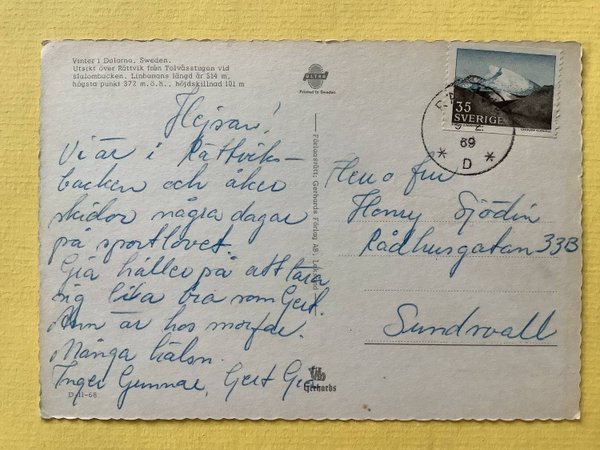 Vinter i Dalarna, Sweden.
Utsikt över Rättvik från Tolvåsstugan vid
slalombacken. Linbanans längd är 514 m,
högsta punkt 372 m.ö.h., höjdskillnad 101 m
ULTRA
Printed in Sweden
35
SVERIGE
9. 2.
69
* D *
Hejsan!
Vi är i Rättviks-
backen och åker
skidor några dagar
på sportlovet.
Gia håller på att lära
sig lika bra som Gert.
Ann är hos morfar.
Många hälsn.
Inger Gunnar, Gert Gia
D 11-68
Förlagsrätt: Gerhards Förlag AB,
Gerhards
Herr o fru
Henry Sjödin
Rådhusgatan 33B
Sundsvall